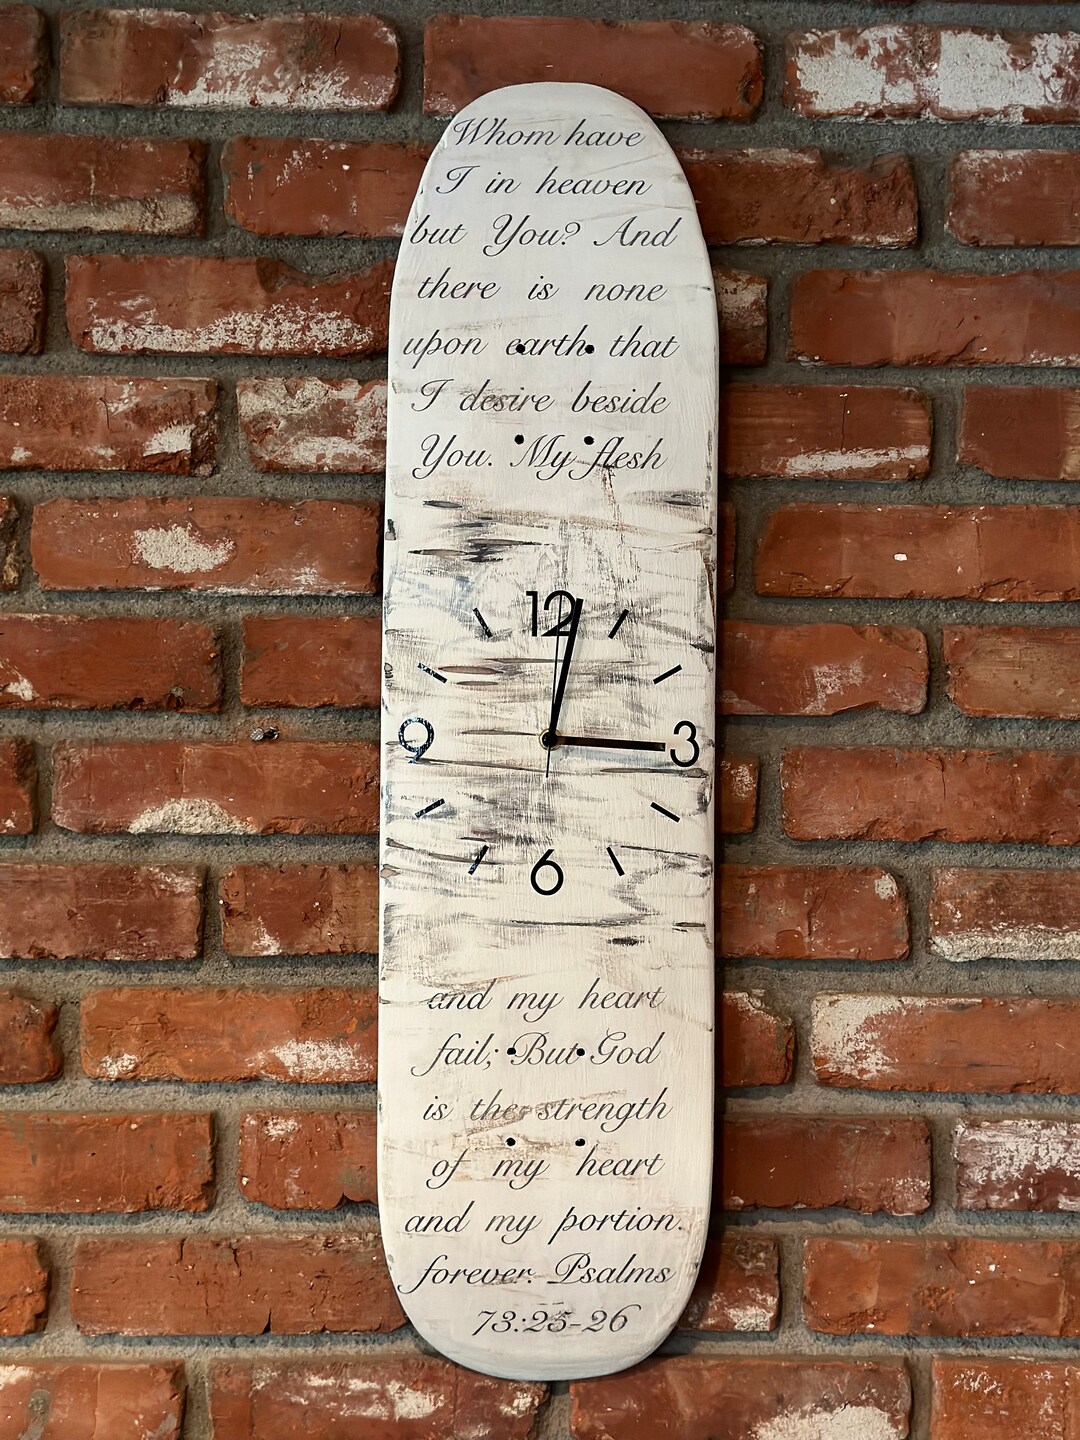 Whom have
I in heaven
but You? And
there is none
upon earth that
I desire beside
You. My flesh
12
9 3
6
and my heart
fail; But God
is the strength
of my heart
and my portion
forever. Psalms
73:25-26